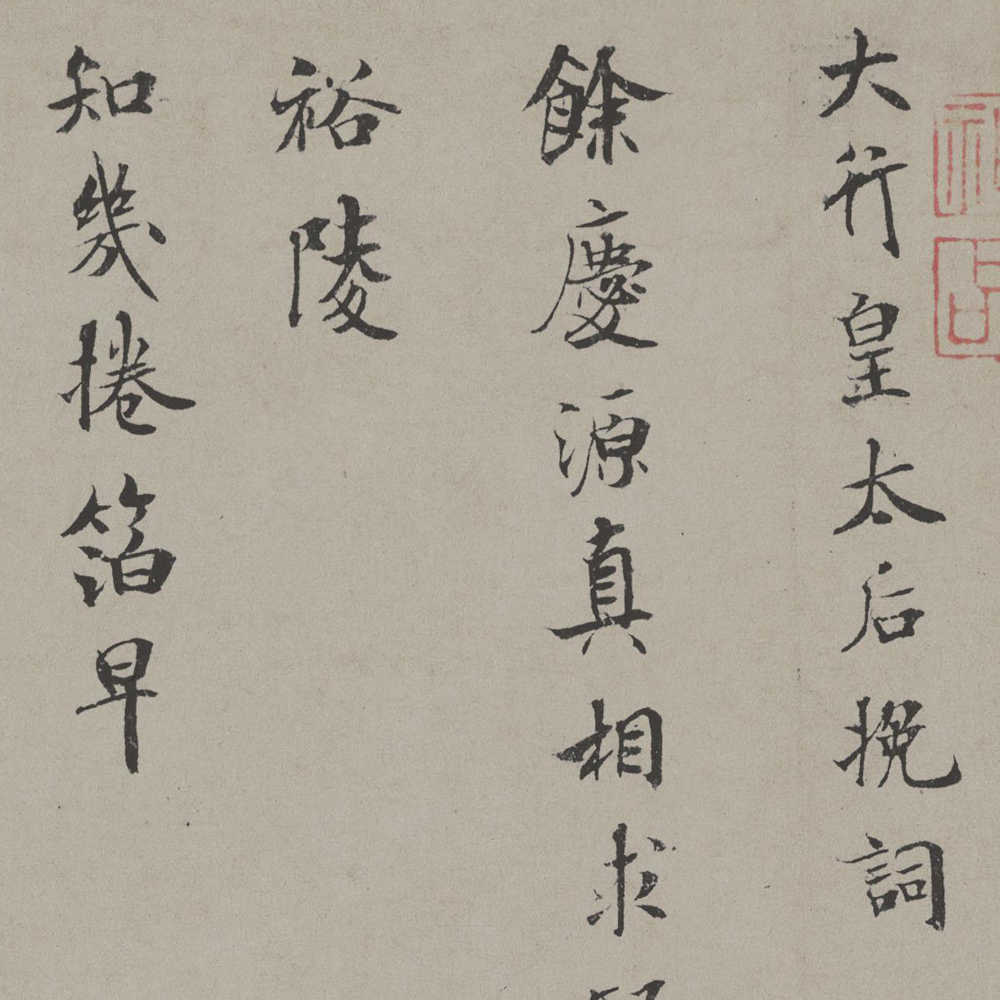 大行皇太后挽詞
餘慶源真相求
裕陵
知幾捲箔早